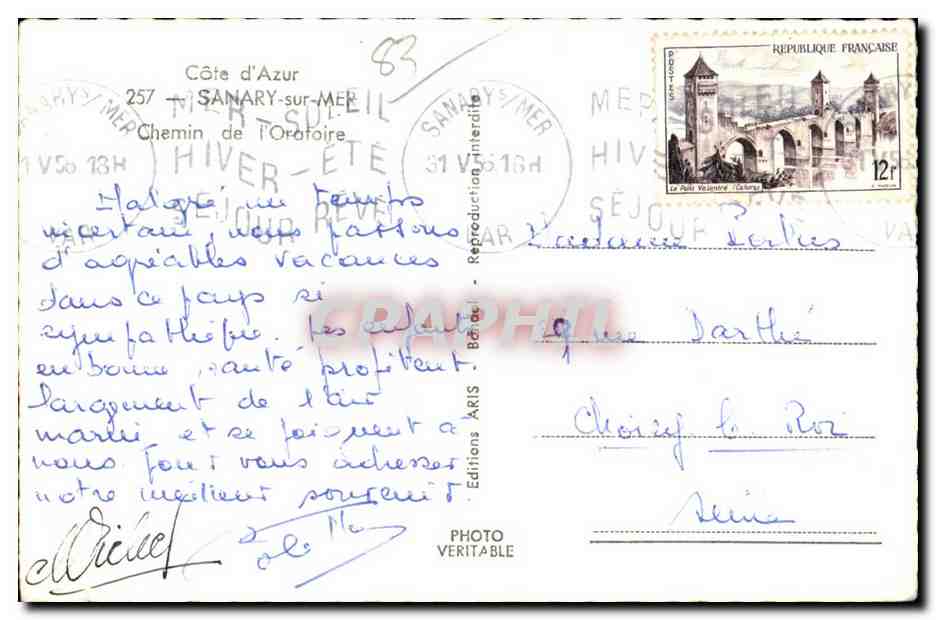 83
Côte d'Azur
257 — SANARY-sur-MER
Chemin de l'Oratoire
SANARY S/MER
31 V 56 18H
VAR
MER - SOLEIL
HIVER - ÉTÉ
SÉJOUR RÊVÉ
Malgré un temps
incertain, nous passons
d'agréables vacances
dans ce pays si
sympathique. Les enfants
en bonne santé profitent
largement de l'air
marin et se joignent à
nous pour vous adresser
notre meilleur souvenir.
Michel
Editions ARIS - Bandol - Reproduction interdite
PHOTO
VERITABLE
REPUBLIQUE FRANÇAISE
POSTES
12F
Le Pont Valentré (Cahors)
Madame
rue Darthé
Choisy le Roi
Seine
CPAPHIL